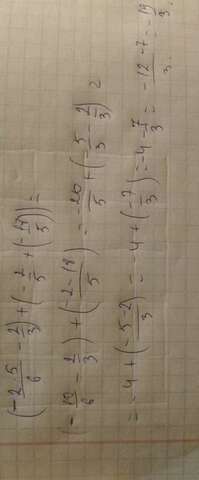 (-2·5/6 - 2/3) + (-2/5 + (-18/5)) =
(-10/6 - 2/3) + (-2-18/5) = -20/5 + (-5/3 - 2/3) =
= -4 + (-5-2/3) = -4 + (-7/3) = -4 - 7/3 = -12-7/3 = -19/3.